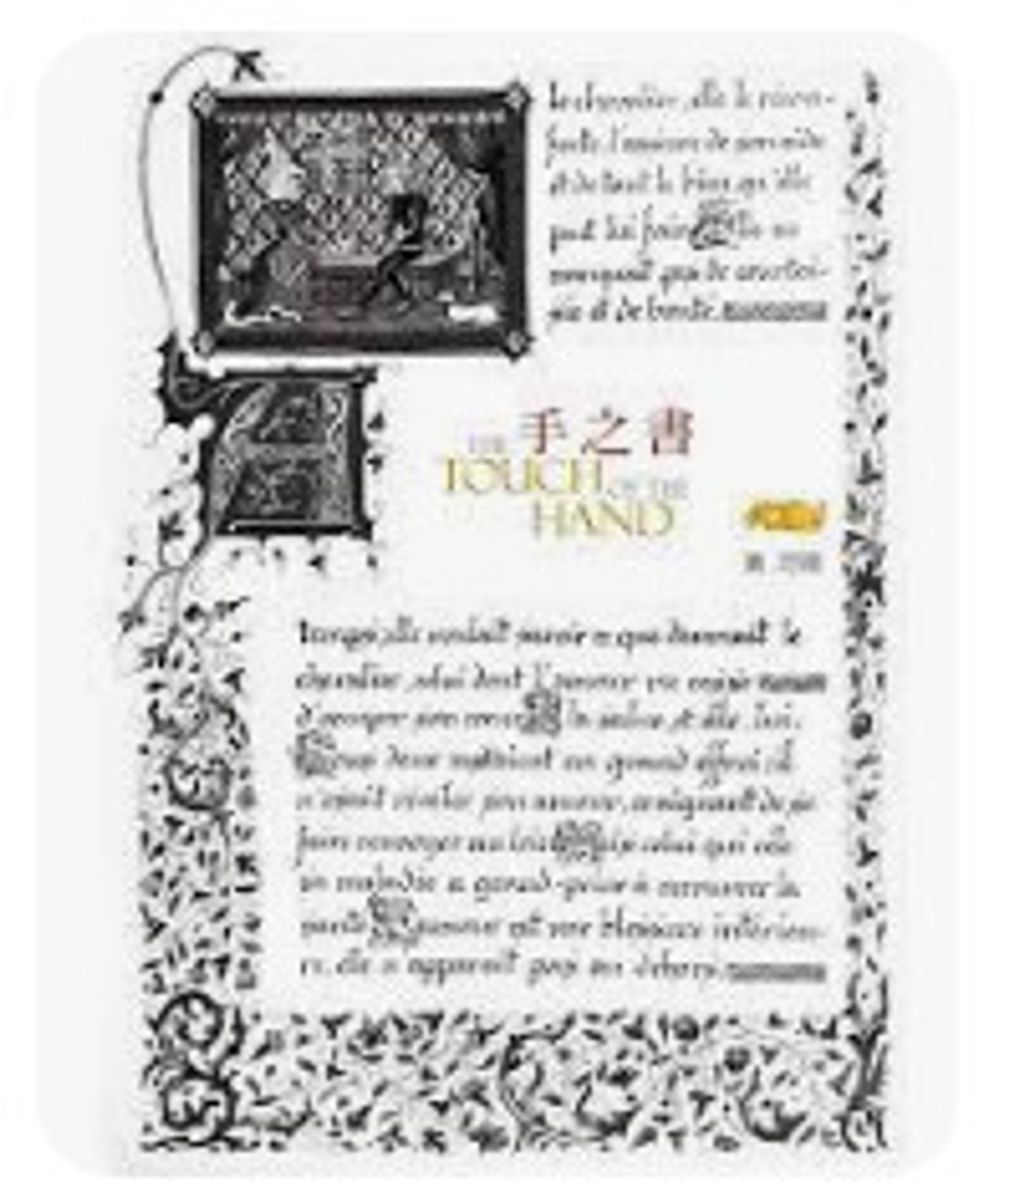 le chevalier, elle le récon-
forte, l'assure de son aide
et de tout le bien qu'elle
peut lui faire Elle ne
manquait pas de courtoi-
sie et de bonté.
手之書
THE
TOUCH OF THE
HAND
elle voulait savoir ce que devenait le
chevalier, celui dont l'amour ne
son Il la salue, et elle lui.
deux un grand effroi il
n'osait révéler son amour, craignant de se
faire renvoyer au loin Mais celui qui cèle
sa maladie a grand-peine à recouvrer la
santé L'amour est une blessure intérieu-
re, elle n'apparaît pas au dehors.